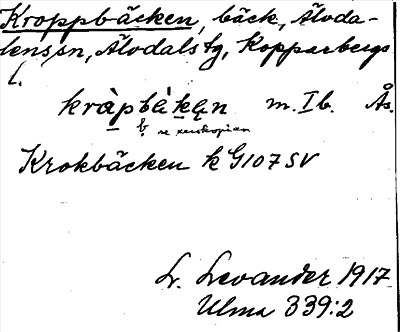 Kroppbäcken, bäck, Älvda-
lens sn, Älvdals tg, Kopparbergs
l.
kràpbäkęn m. Ib. Ås.
b̥ se xerokopian
Krokbäcken k G107 SV
L. Levander 1917
Ulma 339:2